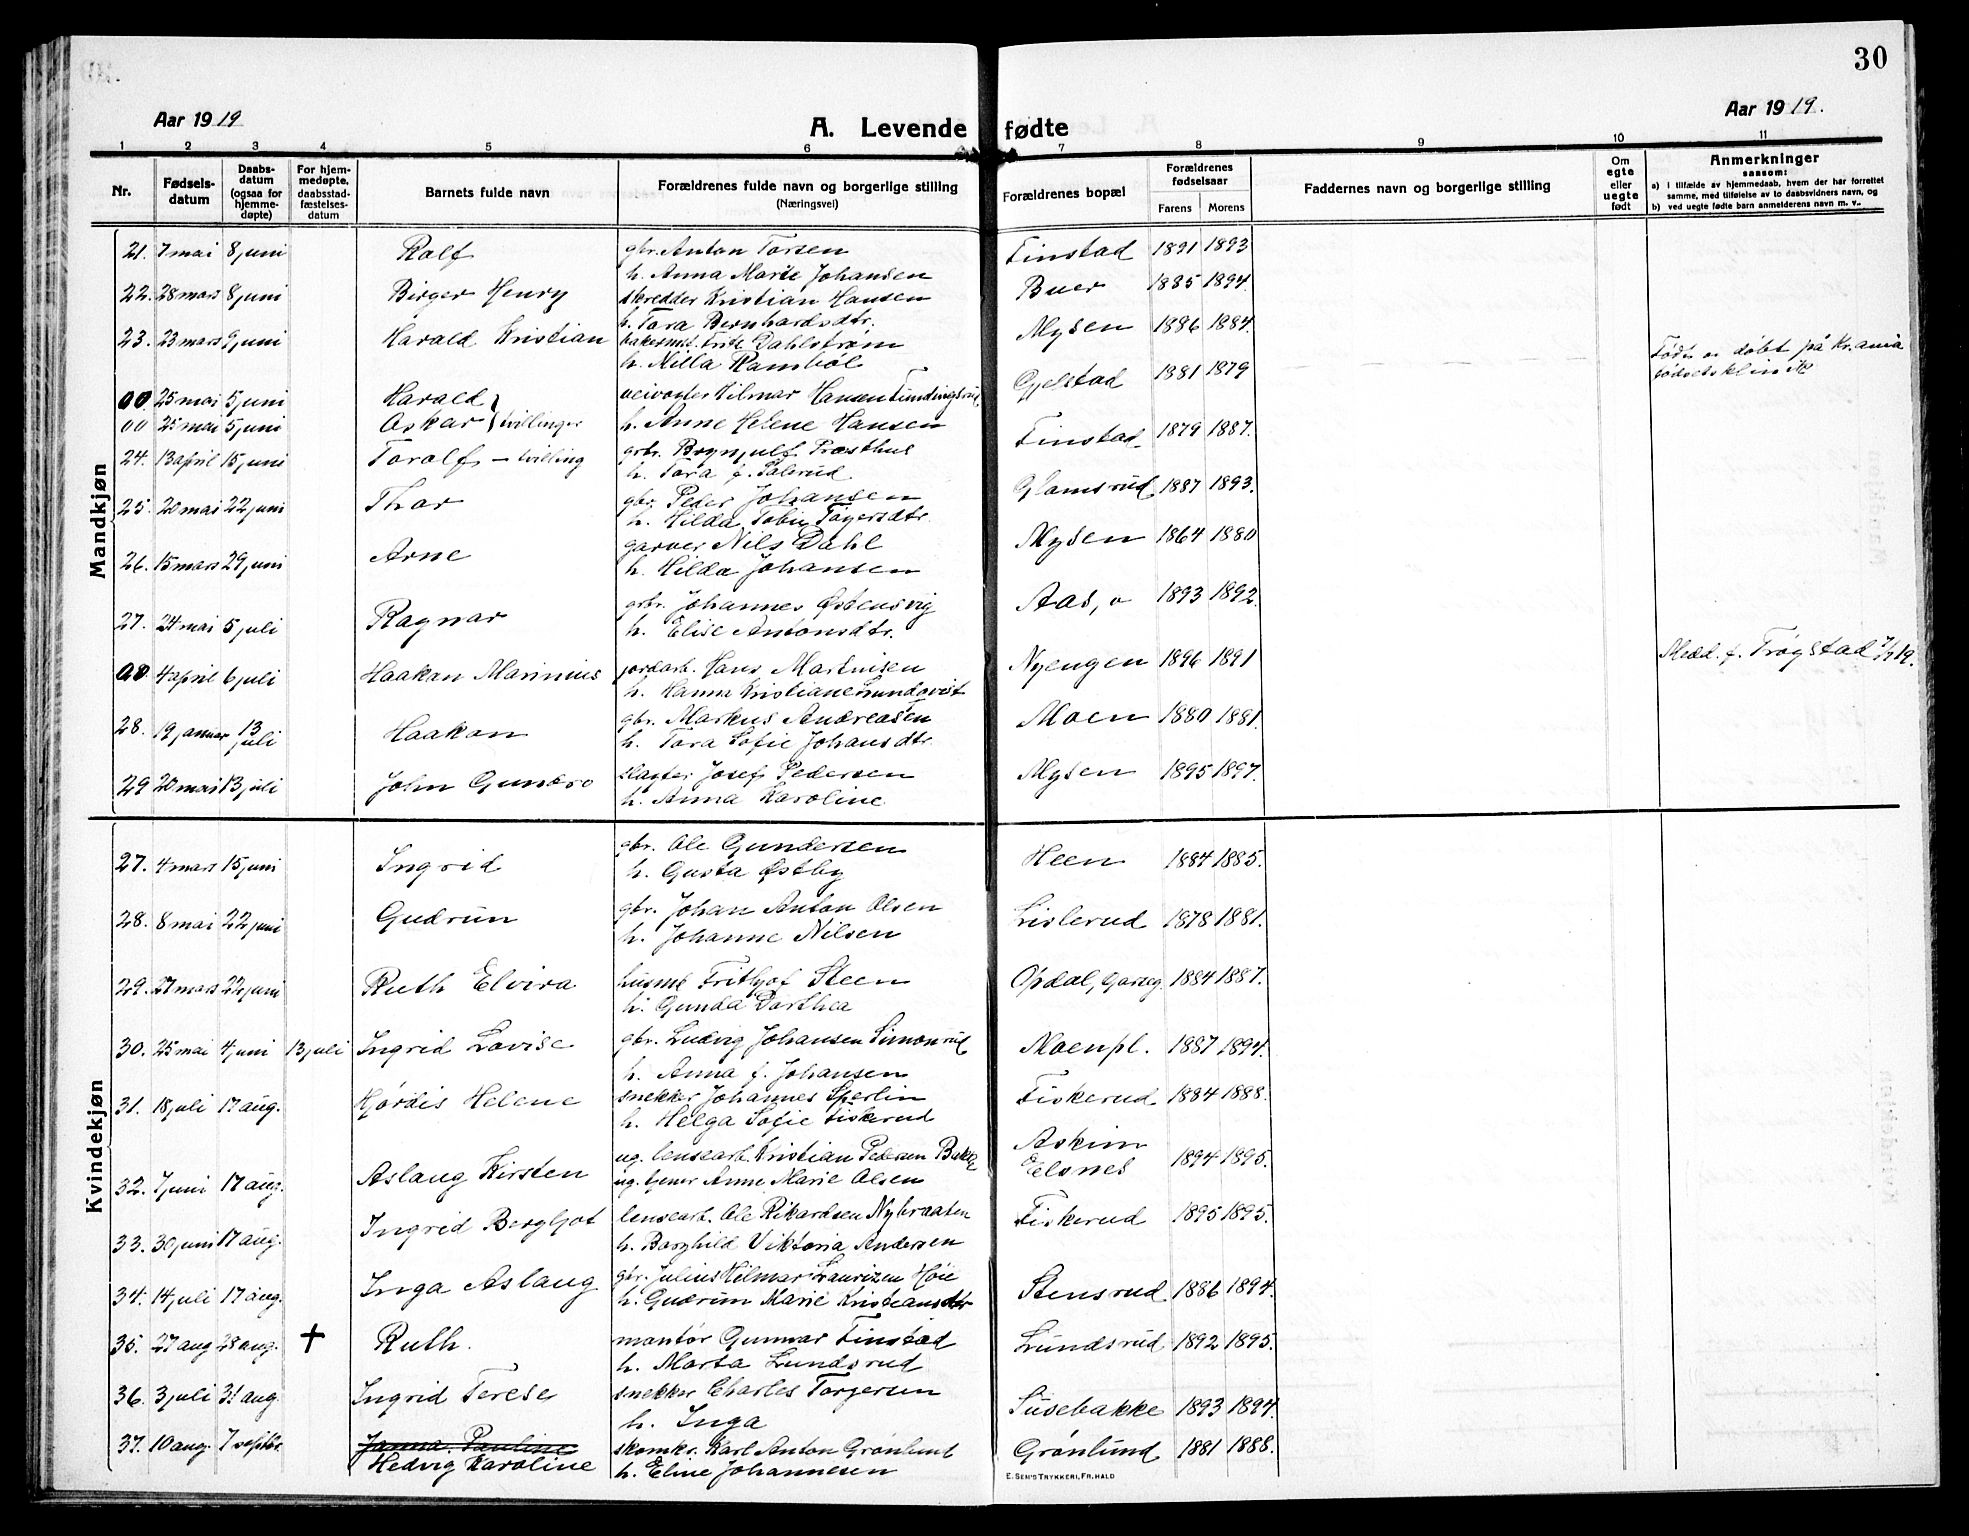 30
Aar 1919
A. Levende fødte
Aar 1919.
1 2 3 4 5 6 7 8 9 10 11
Nr. Fødsels-datum Daabs-datum (ogsaa for hjemme-døpte) For hjem-medøpte, daabsstad-fæstelses-datum Barnets fulde navn Forældrenes fulde navn og borgerlige stilling (Næringsvei) Forældrenes bopæl Forældrenes fødselsaar Farens Morens Faddernes navn og borgerlige stilling Om egte eller uegte født Anmerkninger
saasom:
a) i tilfælde av hjemmedaab, hvem der har forrettet samme, med tilføielse av to daabsvidners navn, og
b) ved uegte fødte barn anmelderens navn m. v.
Mandkjøn
21. 7 mai 8 juni Rolf gbr. Anton Torsen Finstad 1891 1893
h. Anna Marie Johansen
22. 28 mars 8 juni Birger Henry skredder Kristian Hansen Buer 1885 1894
h. Tora Bernhardsdtr.
23. 23 mars 9 juni Harald Kristian Dahlstrøm Mysen 1886 1884.
h. Milla Rambøl
00. 25 mai 5 juni Harald veivogter Hilmar Hansen Gjelstad 1881 1879 Født og døbt på Kr.ania fødselsklinik
00 25 mai 5 juni Oskar } tvillinger h. Anne Helene Hansen
24. 13 april 15 juni Toralf – tvilling gbr. Brynjulf Præsthus Finstad 1879 1887.
h. Tora f.
25. 20 mai 22 juni Thor gbr. Peder Johansen Glomsrud 1887 1893.
h. Hilda
26. 15 mars 29 juni Arne garver Nils Dahl Mysen 1864 1880
h. Hilda Johansen
27. 24 mai 5 juli Ragnar gbr. Johannes Østensvig Aas, ø 1893 1892.
h. Elise Antonsdtr.
00 4 april 6 juli Haakan Marinius jordarb. Hans Martinsen Nyengen 1896 1891 Medd. f. Trøgstad 7/7 19.
h. Hanna Kristiane Lundqvist
28. 19 januar 13 juli Haakon gbr. Markus Andreasen Moen 1880 1881.
h. Tora Sofie Johansdtr.
29 20 mai 13 juli John Gunbro slagter Josef Pedersen Mysen 1895 1897.
h. Anna Karoline
Kvindekjøn
27. 4 mars 15 juni Ingrid gbr. Ole Gundersen Heen 1884 1885.
h. Gusta Østby
28. 8 mai 22 juni Gudrun gbr. Johan Anton Olsen Lislerud 1878 1881.
h. Johanne Nilsen
29. 27 mars 22 juni Ruth Elvira husmd Frithjof Steen Opdal, 1884 1887.
h. Gunda Dorthea
30. 25 mai 4 juni 13 juli Ingrid Lovise gbr. Ludvig Johansen Simonrud Moenpl. 1887 1894.
h. Anna f. Johansen
31. 18 juli 17 aug. Hjørdis Helene snekker Johannes Sperlin Fiskerud 1884 1888.
h. Helga Sofie Fiskerud
32. 7 juni 17 aug. Aslaug Kirsten ug. lensearb. Kristian Pedersen Bakke Askim 1894 1895.
ug. tjener Anne Marie Olsen Elsnes
33. 30 juni 17 aug. Ingrid Bergljot lensearb. Ole Rikardsen Nybraaten Fiskerud 1895 1895.
h. Borghild Viktoria Andersen
34. 14 juli 17 aug. Inga Aslaug gbr. Julius Hilmar Lauritzen Høie Stensrud 1886 1894.
h. Gudrun Marie Kristiansdtr
35. 27 aug 28 aug. † Ruth. montør Gunnar Finstad Lundsrud 1892 1895.
h. Marta Lundsrud
36. 3 juli 31 aug. Ingrid Terese snekker Charles Torgersen Susebakke 1893 1894.
h. Inga
37. 10 aug. 7 septbr. Janna Pauline skomkr. Karl Anton Grønlund Grønlund 1881 1888.
Hedvig Karoline h. Eline Johannesen
E. SEM'S TRYKKERI, FR.HALD